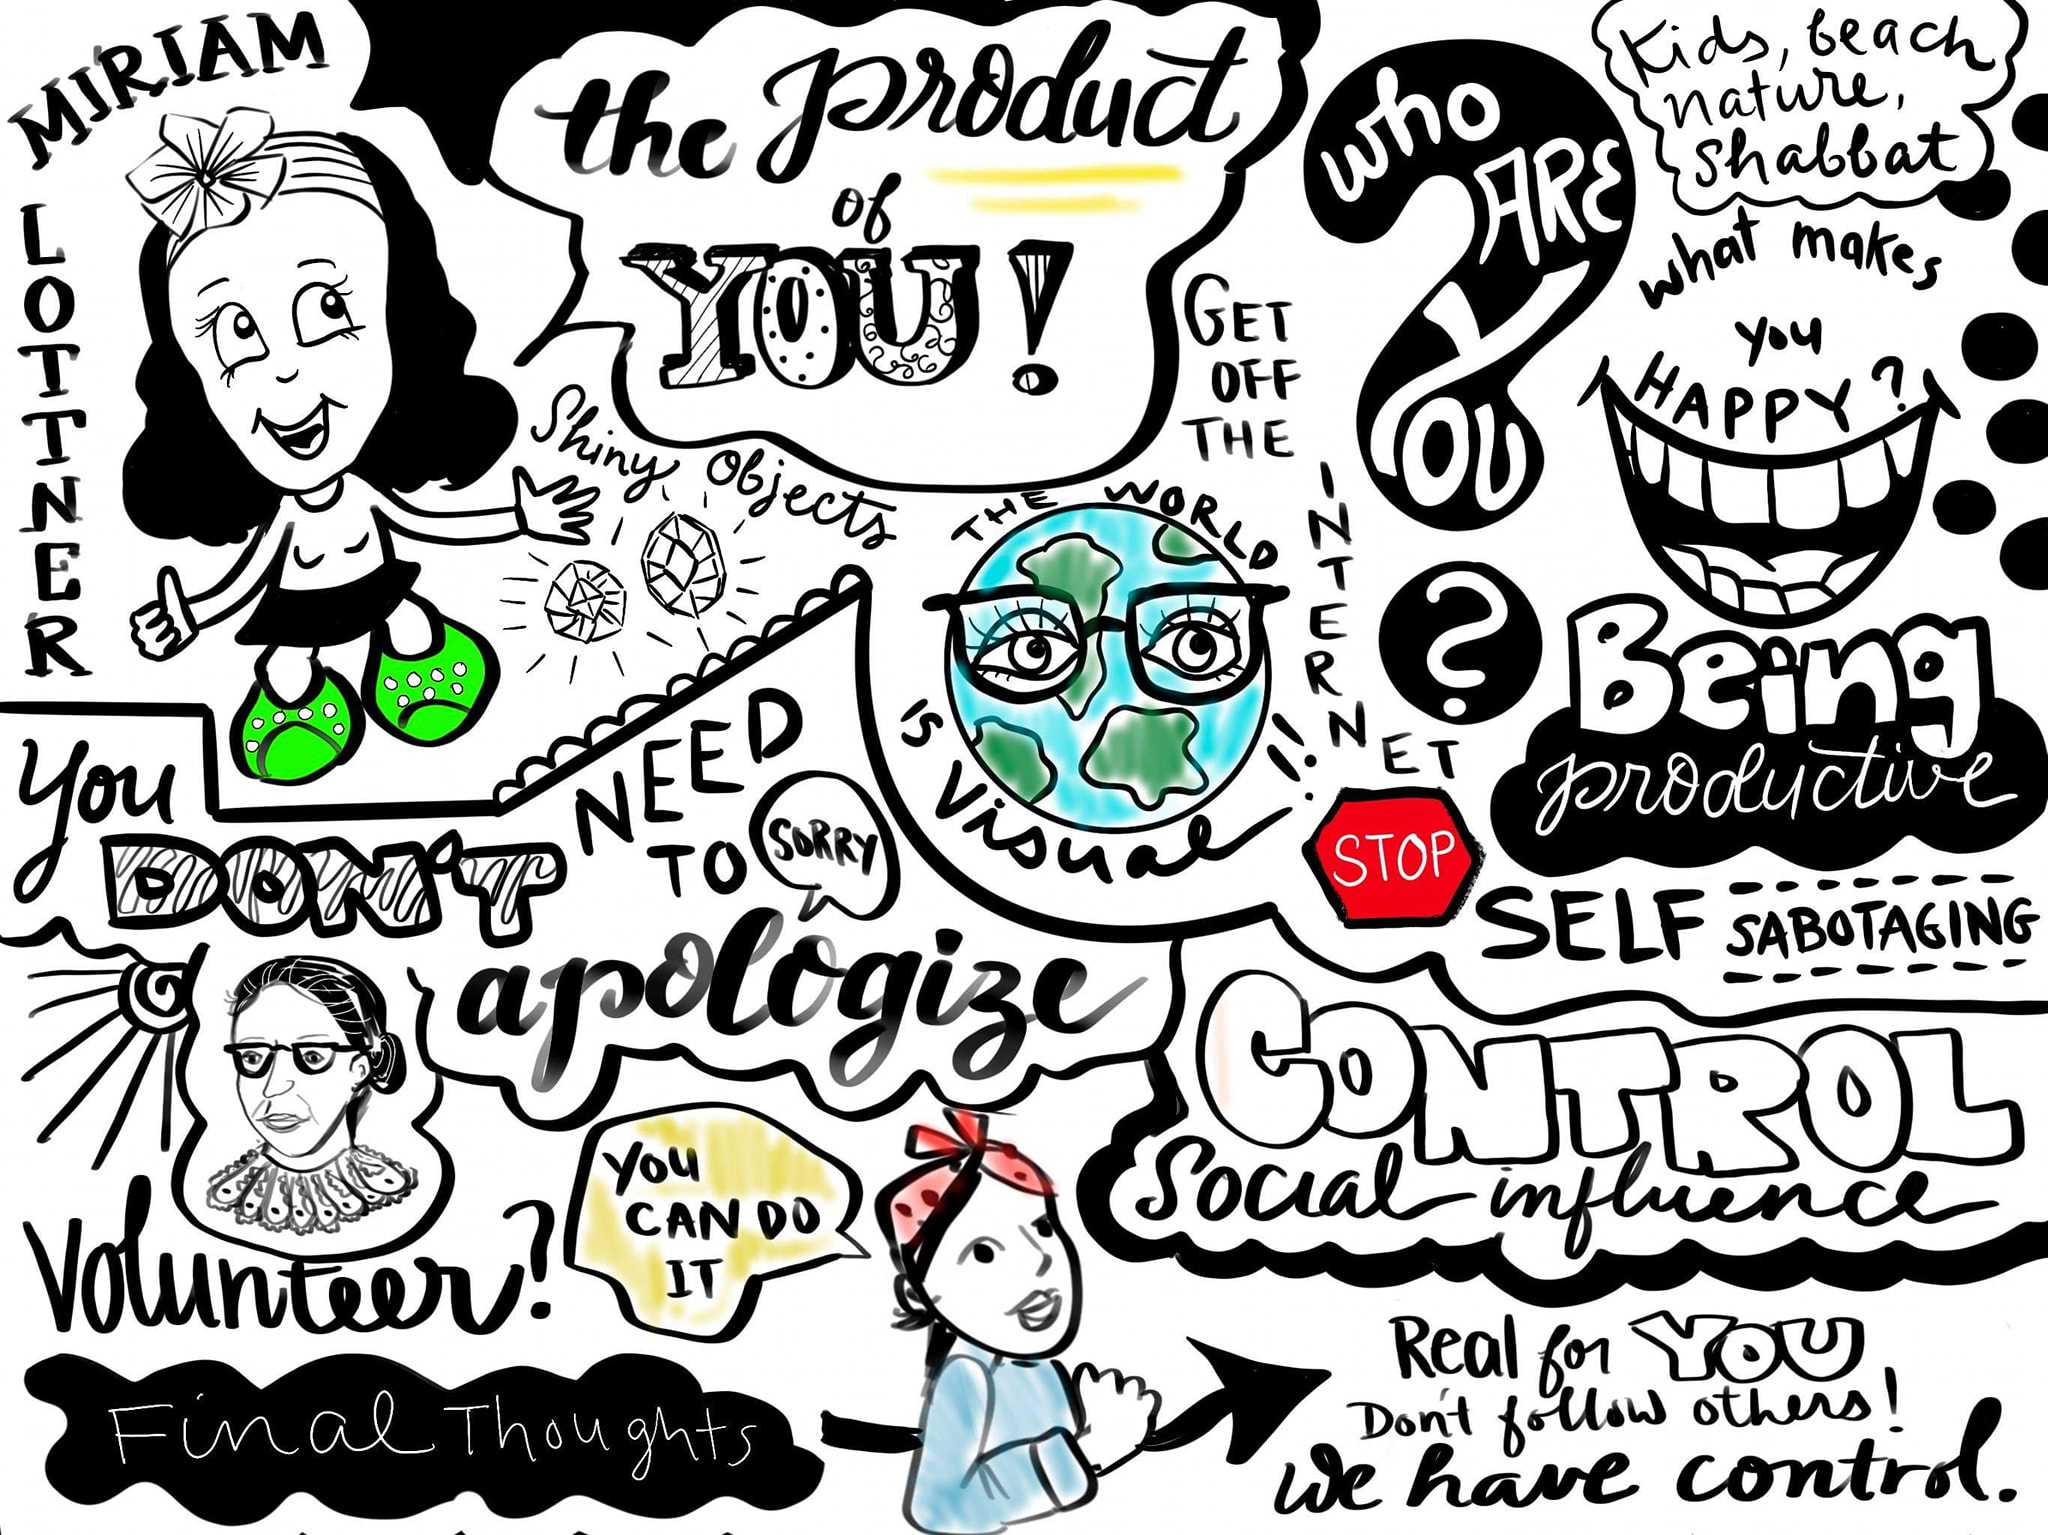 MIRIAM
LOTTNER
the product
of
YOU!
Shiny Objects
THE WORLD
IS Visual!!
GET
OFF
THE
INTERNET
WHO
ARE
YOU
?
Kids, beach
nature,
shabbat
what makes
you
HAPPY?
Being
productive
STOP
SELF SABOTAGING
You
DON'T
NEED
TO
SORRY
apologize
CONTROL
Social influence
Volunteer?
YOU
CAN DO
IT
Final Thoughts
Real for YOU
Don't follow others!
We have control.